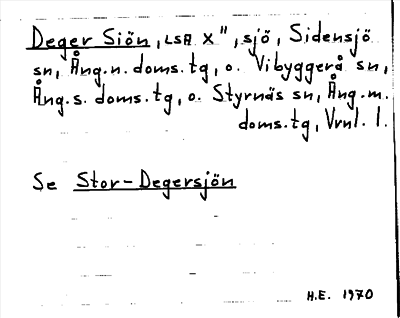 Deger Siön, LSA X", sjö, Sidensjö
sn, Ång.n. doms.tg, o. Vibyggerå sn,
Ång.s. doms.tg, o. Styrnäs sn, Ång.m.
doms.tg, Vrnl. l.
Se Stor-Degersjön
H.E. 1970